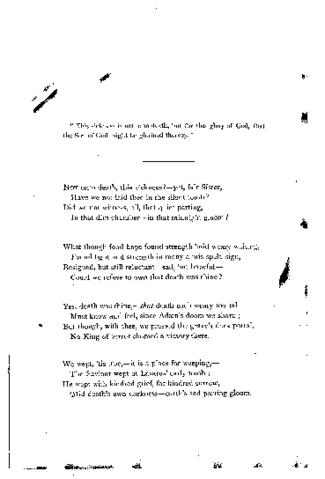 "This sickness is not unto death, but for the glory of God, that
the Son of God might be glorified thereby."
Not unto death, this sickness?—yet, fair Sister,
Have we not laid thee in the silent tomb?
Did we not witness, all, that quiet parting,
In that dim chamber—in that midnight gloom?
What though fond hope found strength 'mid weary waiting,
Found light and strength in many a sign,
Resigned, but still reluctant—sad, but hopeful—
Could we refuse to own that death was thine?
Yes, death was thine,—that death each weary mortal
Must know and feel, since Adam's doom we share;
But though, with thee, we passed the grave's dark portal,
No King of terror claimed a victory there.
We wept, 'tis true,—it is a place for weeping,—
The Saviour wept at Lazarus' early tomb;
He wept with kindred grief, for kindred sorrow,
'Mid death's own darkness—earth's sad parting gloom.